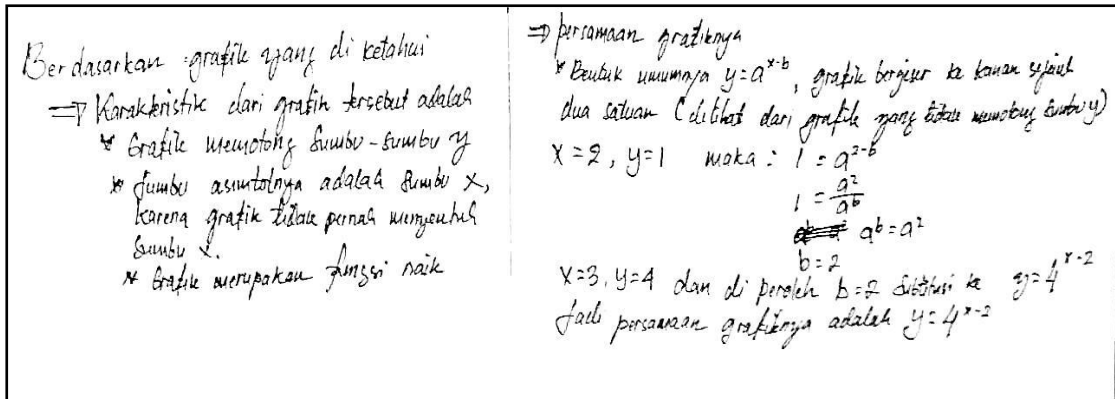 Berdasarkan grafik yang di ketahui
⇒ Karakteristik dari grafik tersebut adalah
* Grafik memotong Sumbu-sumbu y
* Sumbu asimtotnya adalah Sumbu x,
karena grafik tidak pernah menyentuh
Sumbu x.
* Grafik merupakan fungsi naik
⇒ persamaan grafiknya
* Bentuk umumnya y = a^{x-b}, grafik bergeser ke kanan sejauh
dua satuan (dilihat dari grafik yang tidak memotong sumbu y)
x = 2, y = 1 maka : 1 = a^{2-b}
1 = a²/a^b
a^b = a²
b = 2
x = 3, y = 4 dan di peroleh b = 2 Subtitusi ke y = 4^{x-2}
Jadi persamaan grafiknya adalah y = 4^{x-2}